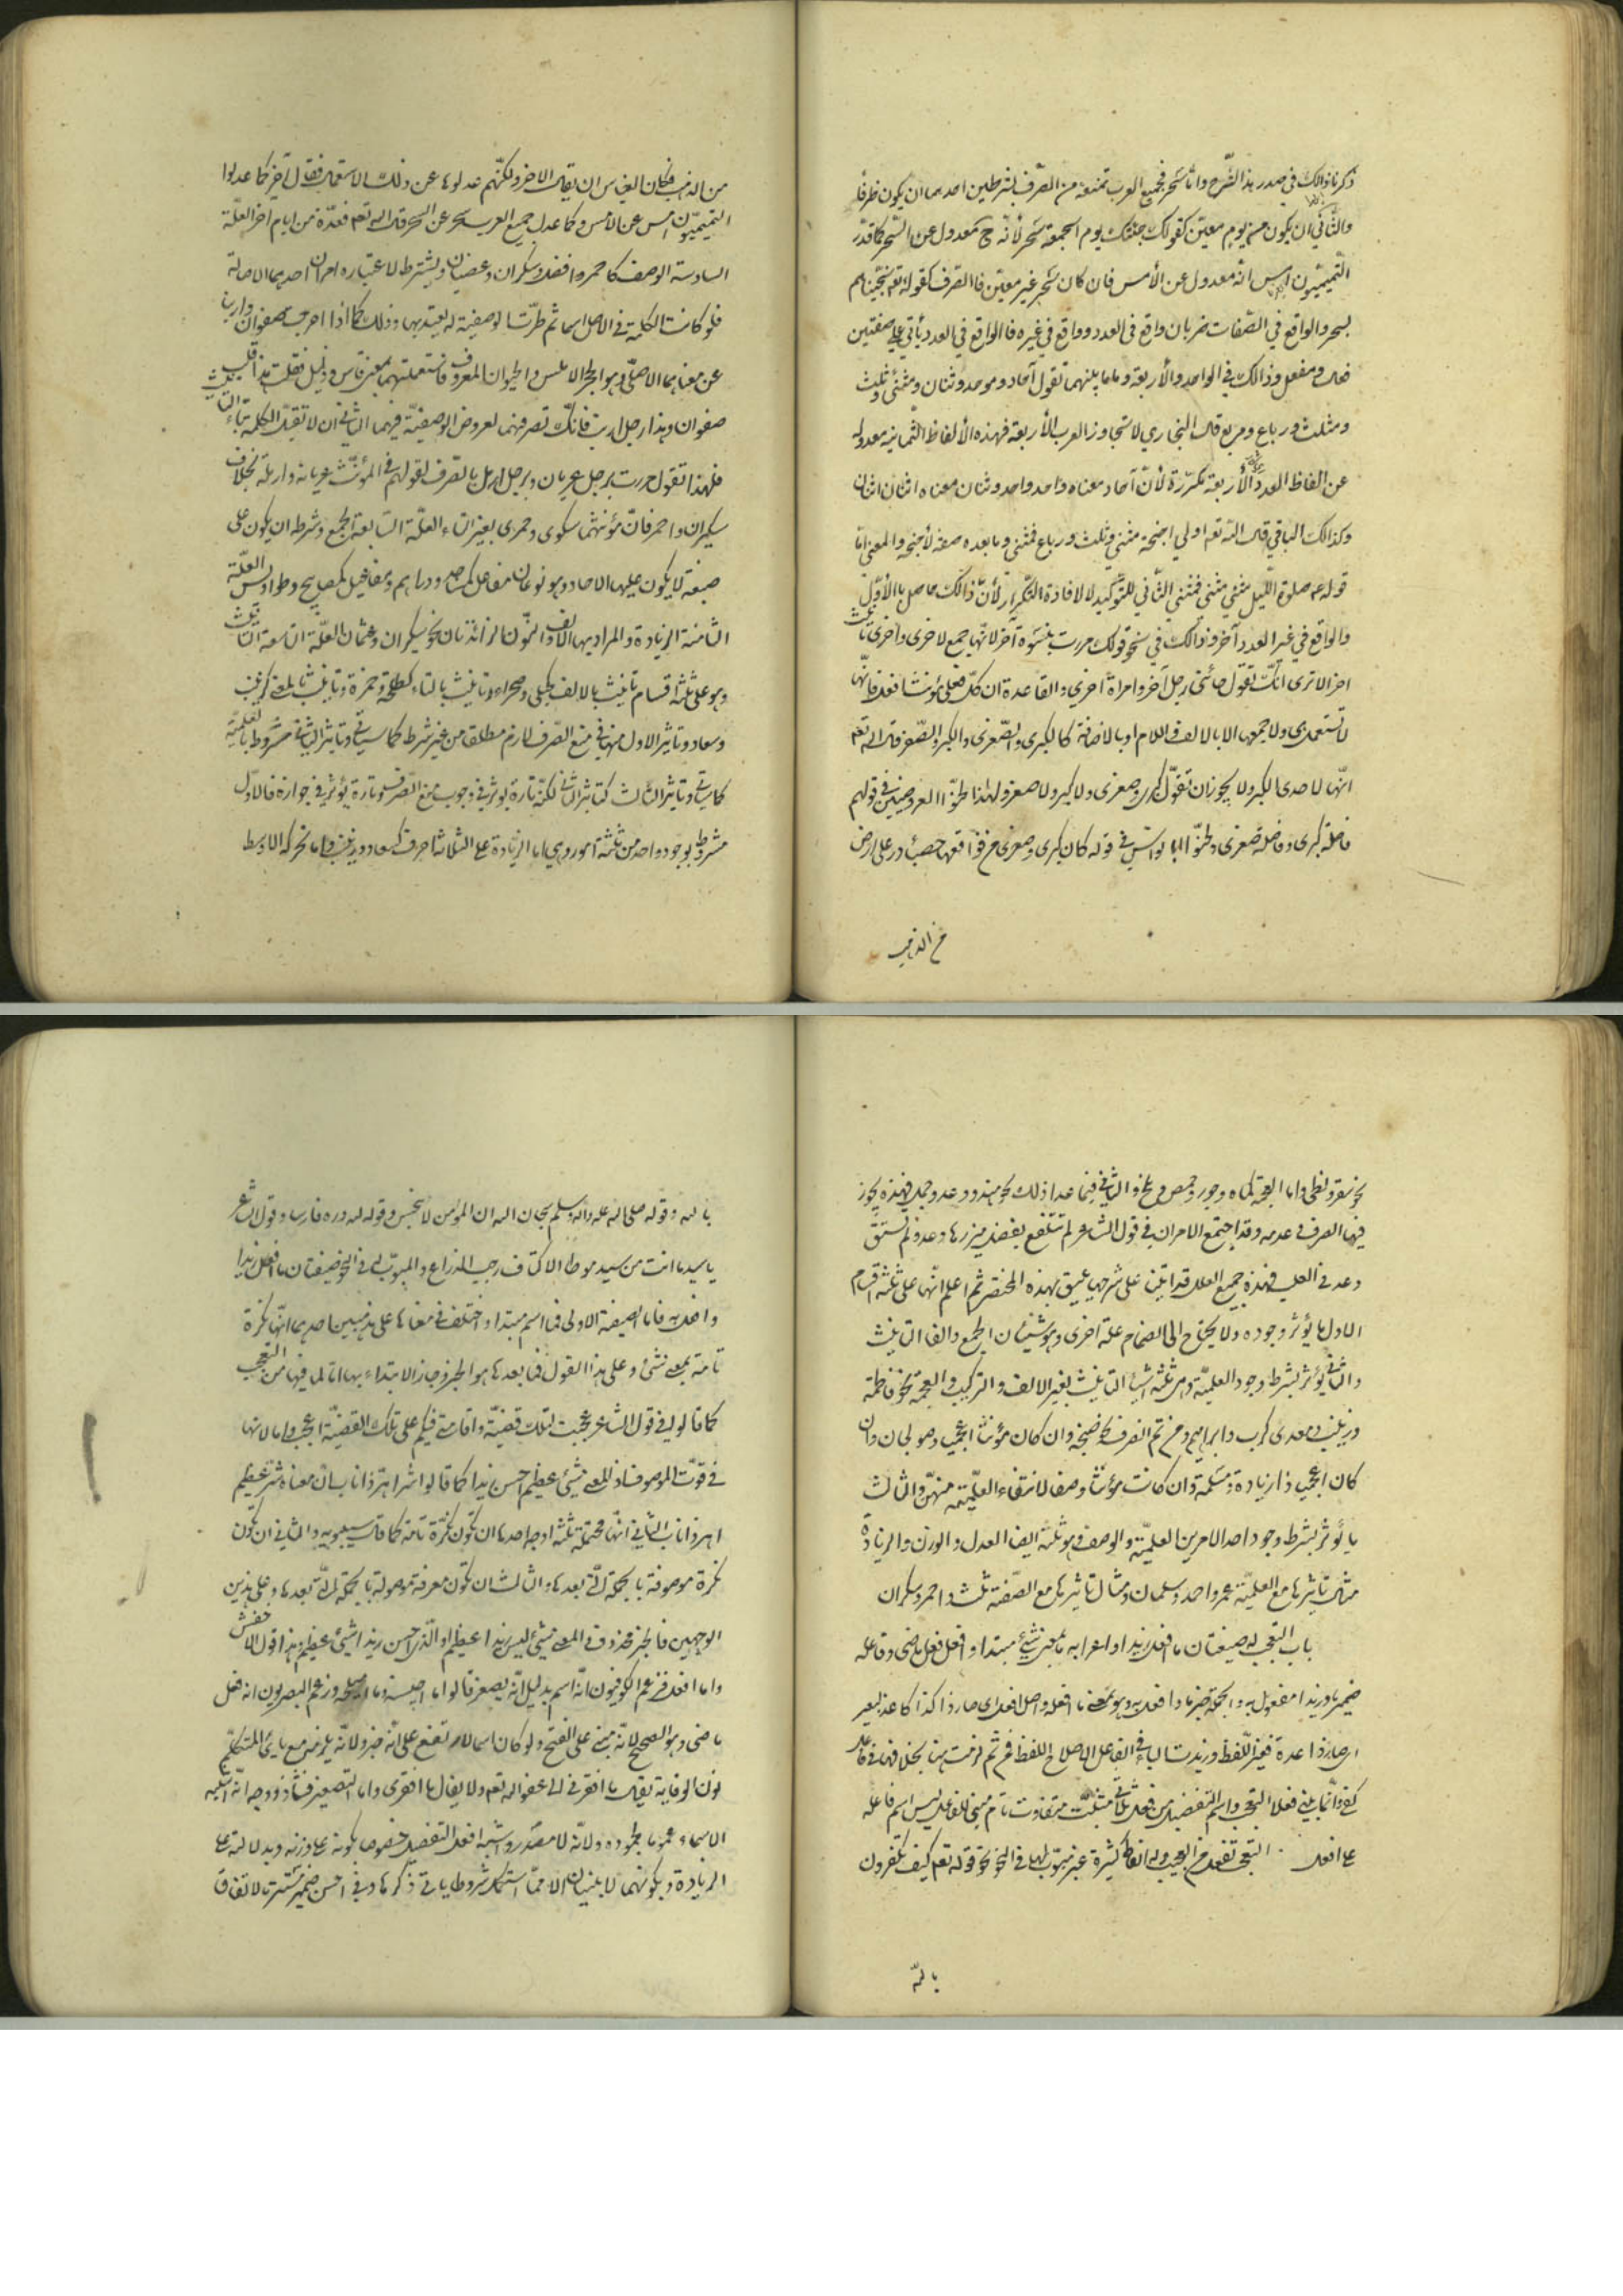 ذكرنا ذالك في صدر هذا الشّرح وامّا سحر فجميع العرب تمنعه من الصّرف بشرطين احدهما ان يكون ظرفًا
والثّاني ان يكون من يوم معيّن كقولك جئتك يوم الجمعة سحر لأنّه ح معدول عن السّحر كما قدّر
التّميميّون امس انّه معدول عن الأمس فان كان سحر غير معيّن فا الصّرف كقوله تع نجّيناهم
بسحر والواقع في الصّفات ضربان واقع في العدد وواقع في غيره فا الواقع في العدد يأتي علي صفتين
فعال ومفعل وذالك في الواحد والأربعة وما بينهما تقول آحاد وموحد وثنان ومثني وثلث
ومثلث ورباع ومربع قال البخاري لا تتجاوز العرب الأربعة فهذه الألفاظ الثّمانية معدولة
عن الفاظ العدد الأربعة مكرّرة لأنّ آحاد معناه واحد واحد وثنان معناه اثنان اثنان
وكذالك الباقي قال اللّه تع اولي اجنحة مثني وثلث ورباع فمثني وما بعده صفة لأجنحة والمعني امّا
قوله عم صلوة اللّيل مثني مثني فمثني الثّاني للتّوكيد لا لافادة التّكرار لأنّ ذالك حاصل بالأوّل
والواقع في غير العدد آخر وذالك في نحو قولك مررت بنسوة آخر لانّها جمع لاخرى واخرى تأنيث
اخر الا ترى انّك تقول جائني رجل آخر وامراة اخرى والقاعدة ان كلّ فعلى مؤنث افعل فانّها
لا تستعمل هي ولا جمعها الا بالالف واللام او بالاضافة كالكبرى والصّغرى والكبر والصّغر قال اللّه تع
انّها لاحدى الكبر ولا يجوز ان تقول كبرى وصغرى ولا كبر ولا صغر ولهذا لحّنوا العروضيين في قولهم
فاصلة كبرى وفاصلة صغرى ولحّنوا ابا نواس في قوله كان كبرى وصغرى من فواقعها حصباء در على ارض
من الذهب
من الذهب فكان القياس ان يقال الاخر ولكنّهم عدلوها عن ذلك الاستعمال فقال آخر كما عدلوا
التميميّون امس عن الامس وكما عدل جميع العرب سحر عن السحر قال اللّه تعم فعدّة من ايام اخر العلّة
السادسة الوصف كاحمر وافضل وسكران وغضبان ويشترط لاعتباره امران احدهما الاصالة
فلو كانت الكلمة في الاصل اسما ثم طرئت لها الوصفية لم يعتد بها وذلك كما اذا اخرجت صفوان وارنبا
عن معناهما الاصلي وهو الحجر الاملس والحيوان المعروف فاستعملتهما بمعنى قاس وذليل فقلت هذا قلب
صفوان وهذا رجل ارنب فانّك تصرفهما لعروض الوصفيّة فيهما الثاني ان لا تقبل الكلمة تاء التأنيث
فلهذا تقول مررت برجل عريان وبرجل ارمل بالصّرف لقولهم في المؤنّث عريانة وارملة بخلاف
سكران واحمر فانّ مؤنثهما سكرى وحمرى بغير التاء العلّة السّابعة الجمع وشرطه ان يكون على
صيغة لا يكون عليها الاحاد وهو نوعان مفاعل كمساجد ودراهم ومفاعيل كمصابيح وطواويس العلّة
الثامنة الزيادة والمراد بها الالف والنّون الزائدتان نحو سكران وعثمان العلّة التاسعة التأنيث
وهو على ثلثة اقسام تأنيث بالالف كحبلى وصحراء وتأنيث بالتاء كطلحة وحمزة وتأنيث بالمعنى كزينب
وسعاد وتأثير الاول منها في منع الصّرف لازم مطلقا من غير شرط كما سيأتي وتأثير الثاني مشروط بالعلميّة
كما سيأتي وتأثير الثالث كتأثير الثاني لكنّه تارة يؤثر في وجوب منع الصّرف وتارة يؤثر في جوازه فالاوّل
مشروط بوجود واحد من ثلثة امور وهي اما الزّيادة على الثلاثة احرف كسعاد وزينب واما تحرك الاوسط
نحو سقر ولظى واما العجمة كماه وجور وحمص وبلخ والثاني فيما عدا ذلك نحو هند ودعد وجمل فهذه يجوز
فيها الصرف وعدمه وقد اجتمع الامران في قول الشاعر لم تتلفع بفضل ميزرها دعد ولم تسق
دعد في العلب فهذه جميع العلل قد اتينا على شرحها يليق بهذه المختصر ثم اعلم انّها على ثلثة اقسام
الاول ما يؤثر وجوده ولا يحتاج الى انضمام علة اخرى وهو شيئان الجمع والفا التأنيث
والثاني يؤثر بشرط وجود العلميّة وهي ثلثة اشياء التأنيث بغير الالف والتركيب والعجمة نحو فاطمة
وزينب ومعدى كرب وابراهيم ومن ثم انصرف نحو صنجة وان كان مؤنثا اعجميا وصولجان وان
كان اعجميا ذا زيادة ومسلمة وان كانت مؤنثا وصفا لانتفاء العلميّة منهنّ والثالث
ما يؤثر بشرط وجود احد الامرين العلميّة والوصف وهو ثلثة ايضا العدل والوزن والزيادة
مثال تأثيرها مع العلميّة عمر واحمد وسلمان ومثال تأثيرها مع الصّفة ثلث واحمر وسكران
باب التعجب له صيغتان ما افعل زيدا واعرابه ما بمعنى شيء مبتدا وافعل فعل ماضى وفاعله
ضمير ما وزيدا مفعول به والجملة خبر ما وافعل به وهو بمعنى ما افعله واصله افعل اى صار ذا كذا كاغد البعير
اى صار ذا غدة فغير اللّفظ وزيدت الباء في الفاعل لاصلاح اللفظ فمن ثم لزمت هنا بخلافها في فاعل
كفى وانّما يبنى فعلا التعجب واسم التفضيل من فعل ثلاثي مثبت متفاوت تام مبنى للفاعل ليس اسم فاعله
على افعل التعجب تفعل من العجب وله الفاظ كثيرة غير مبوّب لها في النحو نحو قوله تع كيف تكفرون
باللّه
باللّه وقوله صلى اللّه عليه وآله وسلم سبحان اللّه ان المؤمن لا ينجس وقوله للّه دره فارسا وقول الشاعر
يا سيدا ما انت من سيد موطأ الاكتاف رحب الذراع والمبوّب له في النحو صيغتان ما افعل زيدا
وافعل به فاما الصيغة الاولى فما اسم مبتدا واختلف في معناها على مذهبين احدهما انّها نكرة
تامة بمعنى شئ وعلى هذا القول فما بعدها هو الخبر وجاز الابتداء بها اما لما فيها من التعجب
كما قالوا في قول الشاعر عجبت لتلك قضيّة واقامتي فيكم على تلك القضيّة اعجب واما لانها
في قوّت الموصوف اذ المعنى شئ عظيم احسن زيدا كما قالوا شر اهر ذا ناب ان معناه شر عظيم
اهر ذا ناب الثاني انّها محتملة ثلثة اوجه احدها ان تكون نكرة تامة كما قال سيبويه والثاني ان تكون
نكرة موصوفة بالجملة الّتي بعدها والثالث ان تكون معرفة موصولة بالجملة الّتي بعدها وعلى هذين
الوجهين فالخبر محذوف والمعنى شئ احسن زيدا عظيم او الّذي احسن زيدا شئ عظيم وهذا قول الاخفش
واما افعل فزعم الكوفيون انّه اسم بدليل انّه يصغر قالوا ما احيسنه وما اميلحه وزعم البصريون انه فعل
ماضى وهو الصحيح لانّه مبنى على الفتح ولو كان اسما لارتفع على انّه خبر ولانّه يلزمه مع ياء المتكلّم
نون الوقاية يقال ما افقرنى الى عفو اللّه تعم ولا يقال ما افقرى واما التصغير فشاذ ووجهه انّه اشبه
الاسماء عموما بجموده ولانّه لا مصدر له واشبه افعل التفضيل خصوصا بكونه على وزنه وبدلالته على
الزيادة وبكونهما لا يبنيان الا ممّا استكمل شروطا ياتي ذكرها وفي احسن ضمير مستتر بالاتفاق